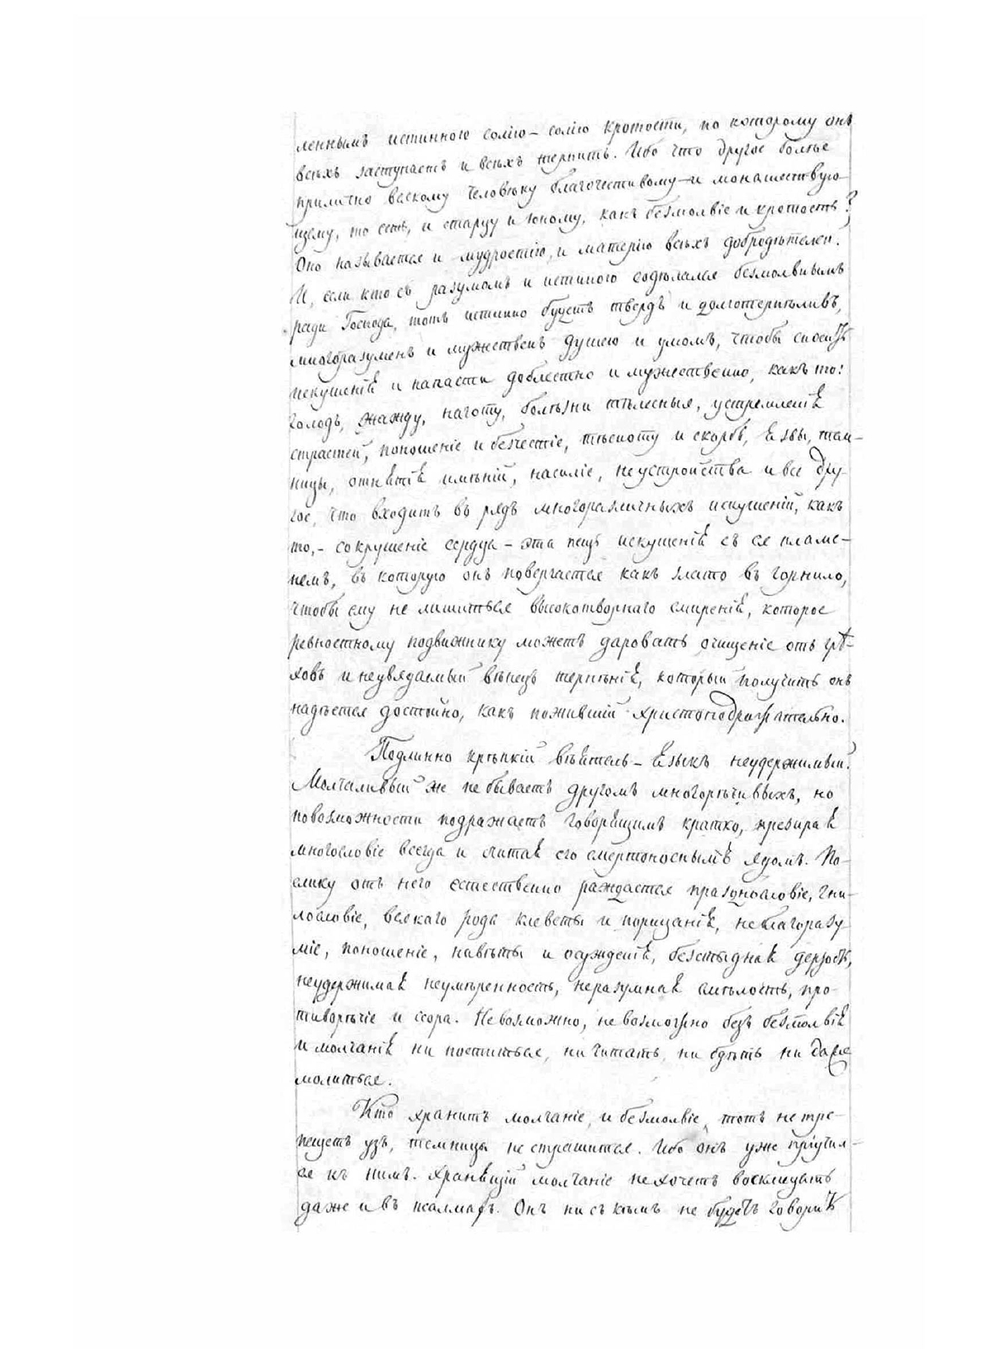 леннымъ истинною солію – солію кротости, по которому онъ
всѣхъ заступаетъ и всѣхъ терпитъ. Ибо что другое болѣе
прилично всякому человѣку благочестивому и монашествую-
щему, то есть, и старцу и юному, какъ безмолвіе и кротость?
Оно называется и мудростію, и матерію всѣхъ добродѣтелей.
И, если кто съ разумомъ и истиною содѣлался безмолвнымъ
ради Господа, тотъ истинно будетъ твердъ и долготерпѣливъ,
многоразуменъ и мужественъ душею и умомъ, чтобы сносить
искушенія и напасти доблестно и мужественно, какъ то:
голодъ, жажду, наготу, болѣзни тѣлесныя, устремленія
страстей, поношеніе и безчестіе, тѣсноту и скорбь, язвы, тем-
ницы, отнятія имѣній, насиліе, неустройства и все дру-
гое, что входитъ въ рядъ многоразличныхъ искушеній, какъ
то,– сокрушеніе сердца – эта пещь искушенія съ ея пламе-
немъ, въ которую онъ повергается какъ злато въ горнило,
чтобы ему не лишиться высокотворнаго смиренія, которое
ревностному подвижнику можетъ даровать очищеніе отъ грѣ-
ховъ и неувядаемый вѣнецъ терпѣнія, который получить онъ
надѣется достойно, какъ пожившій христоподражательно.
Подлинно крѣпкій витель – языкъ неудержимый.
Молчаливый же не бываетъ другомъ многорѣчивыхъ, но
по возможности подражаетъ говорящимъ кратко, презирая
многословіе всегда и считая его смертоноснымъ ядомъ. По-
елику отъ него естественно раждается празднословіе, гни-
лословіе, всякаго рода клеветы и порицанія, неблагоразу-
міе, поношеніе, навѣты и осужденія, безстыдная дерзость,
неудержимая неумѣренность, неразумная смѣлость, про-
тиворѣчіе и ссора. Невозможно, невозможно безъ безмолвія
и молчанія ни поститься, ни читать, ни бдѣть ни даже
молиться.
Кто хранитъ молчаніе, и безмолвіе, тотъ не тре-
пещетъ узъ, темницы не страшится. Ибо онъ уже пріучил-
ся къ нимъ. Хранящій молчаніе не хочетъ восклицать
даже и въ псалмахъ. Онъ ни съ кѣмъ не будетъ говорить